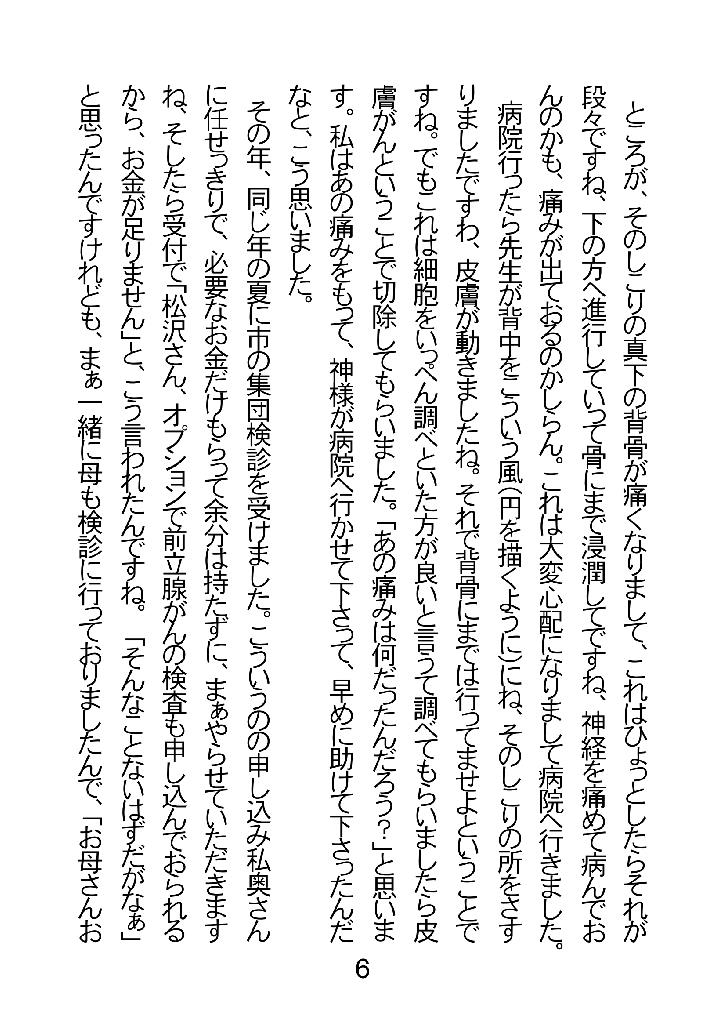 ところが、そのしこりの真下の背骨が痛くなりまして、これはひょっとしたらそれが
段々ですね、下の方へ進行していって骨にまで浸潤してですね、神経を痛めて病んでお
んのかも、痛みが出ておるのかしらん。これは大変心配になりまして病院へ行きました。
病院行ったら先生が背中をこういう風(円を描くように)にね、そのしこりの所をさす
りましたですわ、皮膚が動きましたね。それで背骨にまでは行ってませよということで
すね。でもこれは細胞をいっぺん調べといた方が良いと言うて調べてもらいましたら皮
膚がんということで切除してもらいました。「あの痛みは何だったんだろう?」と思いま
す。私はあの痛みをもって、神様が病院へ行かせて下さって、早めに助けて下さったんだ
なと、こう思いました。
その年、同じ年の夏に市の集団検診を受けました。こういうのの申し込み私奥さん
に任せっきりで、必要なお金だけもらって余分は持たずに、まぁやらせていただきます
ね、そしたら受付で「松沢さん、オプションで前立腺がんの検査も申し込んでおられる
から、お金が足りません」と、こう言われたんですね。「そんなことないはずだがなぁ」
と思ったんですけれども、まぁ一緒に母も検診に行っておりましたんで、「お母さんお
6